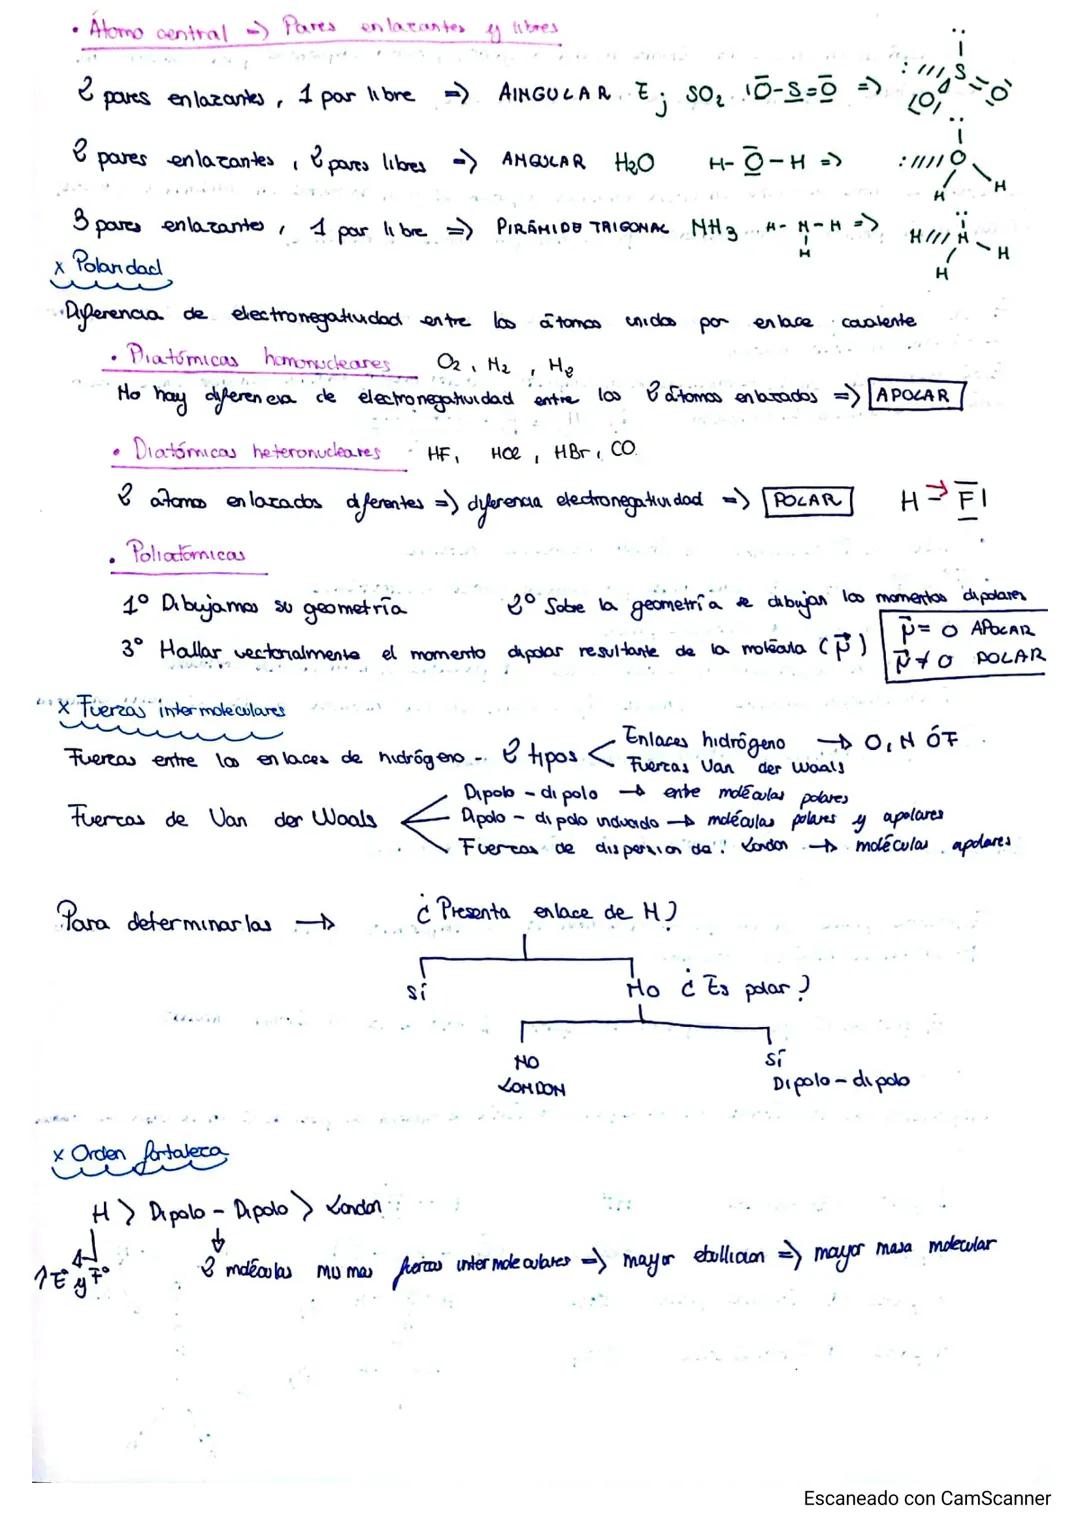 • Átomo central => Pares enlazantes y libres
2 pares enlazantes, 1 par libre => ANGULAR Ej SO2 |O-S=O =>
S O O
2 pares enlazantes, 2 pares libres => ANGULAR H2O H-O-H =>
O H H
3 pares enlazantes, 1 par libre => PIRÁMIDE TRIGONAL NH3 H-N-H =>
H
H N H
H
x Polaridad
Diferencia de electronegatividad entre los átomos unidos por enlace covalente
• Diatómicas homonucleares O2, N2, H2
No hay diferencia de electronegatividad entre los 2 átomos enlazados => APOLAR
• Diatómicas heteronucleares HF, HCl, HBr, CO
2 átomos enlazados diferentes => diferencia electronegatividad => POLAR H → F|
• Poliatómicas
1º Dibujamos su geometría 2º Sobre la geometría se dibujan los momentos dipolares
3º Hallar vectorialmente el momento dipolar resultante de la molécula (μ)
μ = 0 APOLAR
μ ≠ 0 POLAR
x Fuerzas intermoleculares
Fuerzas entre los enlaces de hidrógeno - 2 tipos < Enlaces hidrógeno → O, N ÓF
Fuerzas Van der Waals
Fuerzas de Van der Waals < Dipolo - dipolo → entre moléculas polares
Dipolo - dipolo inducido → moléculas polares y apolares
Fuerzas de dispersión de London → moléculas apolares
Para determinarlas → ¿Presenta enlace de H?
SÍ No ¿Es polar?
NO SÍ
LONDON Dipolo - dipolo
x Orden fortaleza
H > Dipolo - Dipolo > London
↑Eª y Fª
2 moléculas misma fuerzas intermoleculares => mayor ebullición => mayor masa molecular
Escaneado con CamScanner